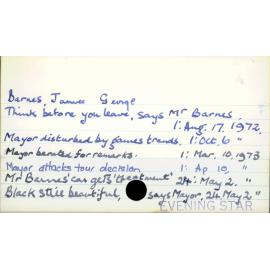 Barnes, James George
Think before you leave, says Mr Barnes.
1: Aug. 17, 1972.
Mayor disturbed by games trends. 1: Oct. 6 "
Mayor berated for remarks. 1: Mar. 10, 1973
Mayor attacks tour decision 1: Ap 10, "
Mr Barnes' car gets 'treatment' 24: May 2. "
Black still beautiful, says Mayor, 24. May 2 "
EVENING STAR